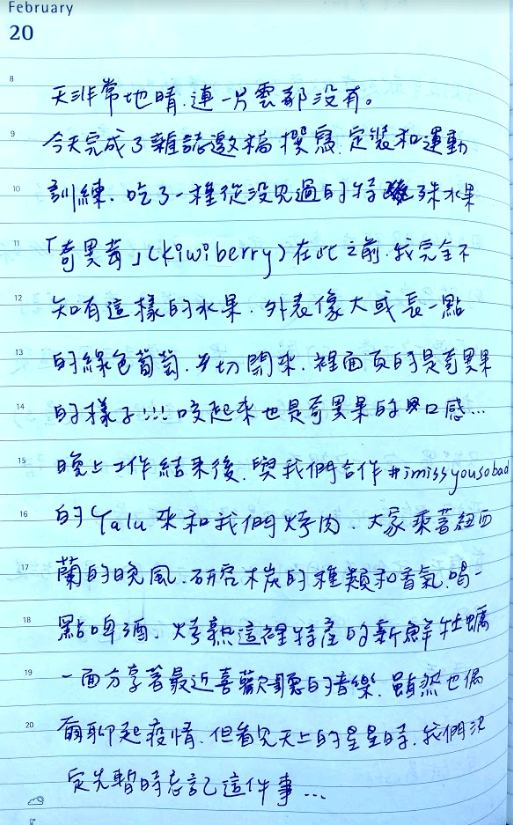 February
20
8
天非常地晴,連一片雲都沒有。
9
今天完成了雜誌邀稿撰寫、定裝和運動
10
訓練、吃了一種從沒見過的特殊水果
11
「奇異莓」(kiwiberry)在此之前,我完全不
12
知有這樣的水果、外表像大或長一點
13
的綠色葡萄、切開來、裡面真的是奇異果
14
的樣子!!!咬起來也是奇異果的口感…
15
晚上工作結束後、與我們合作#imissyousobad
16
的Yalu來和我們烤肉、大家乘著紐西
17
蘭的晚風、研究木炭的種類和香氣、喝一
18
點啤酒、烤熟這裡特產的新鮮牡蠣
19
一面分享著最近喜歡聽的音樂、雖然也偶
20
爾聊起疫情、但看見天上的星星時、我們決
定先暫時忘記這件事…